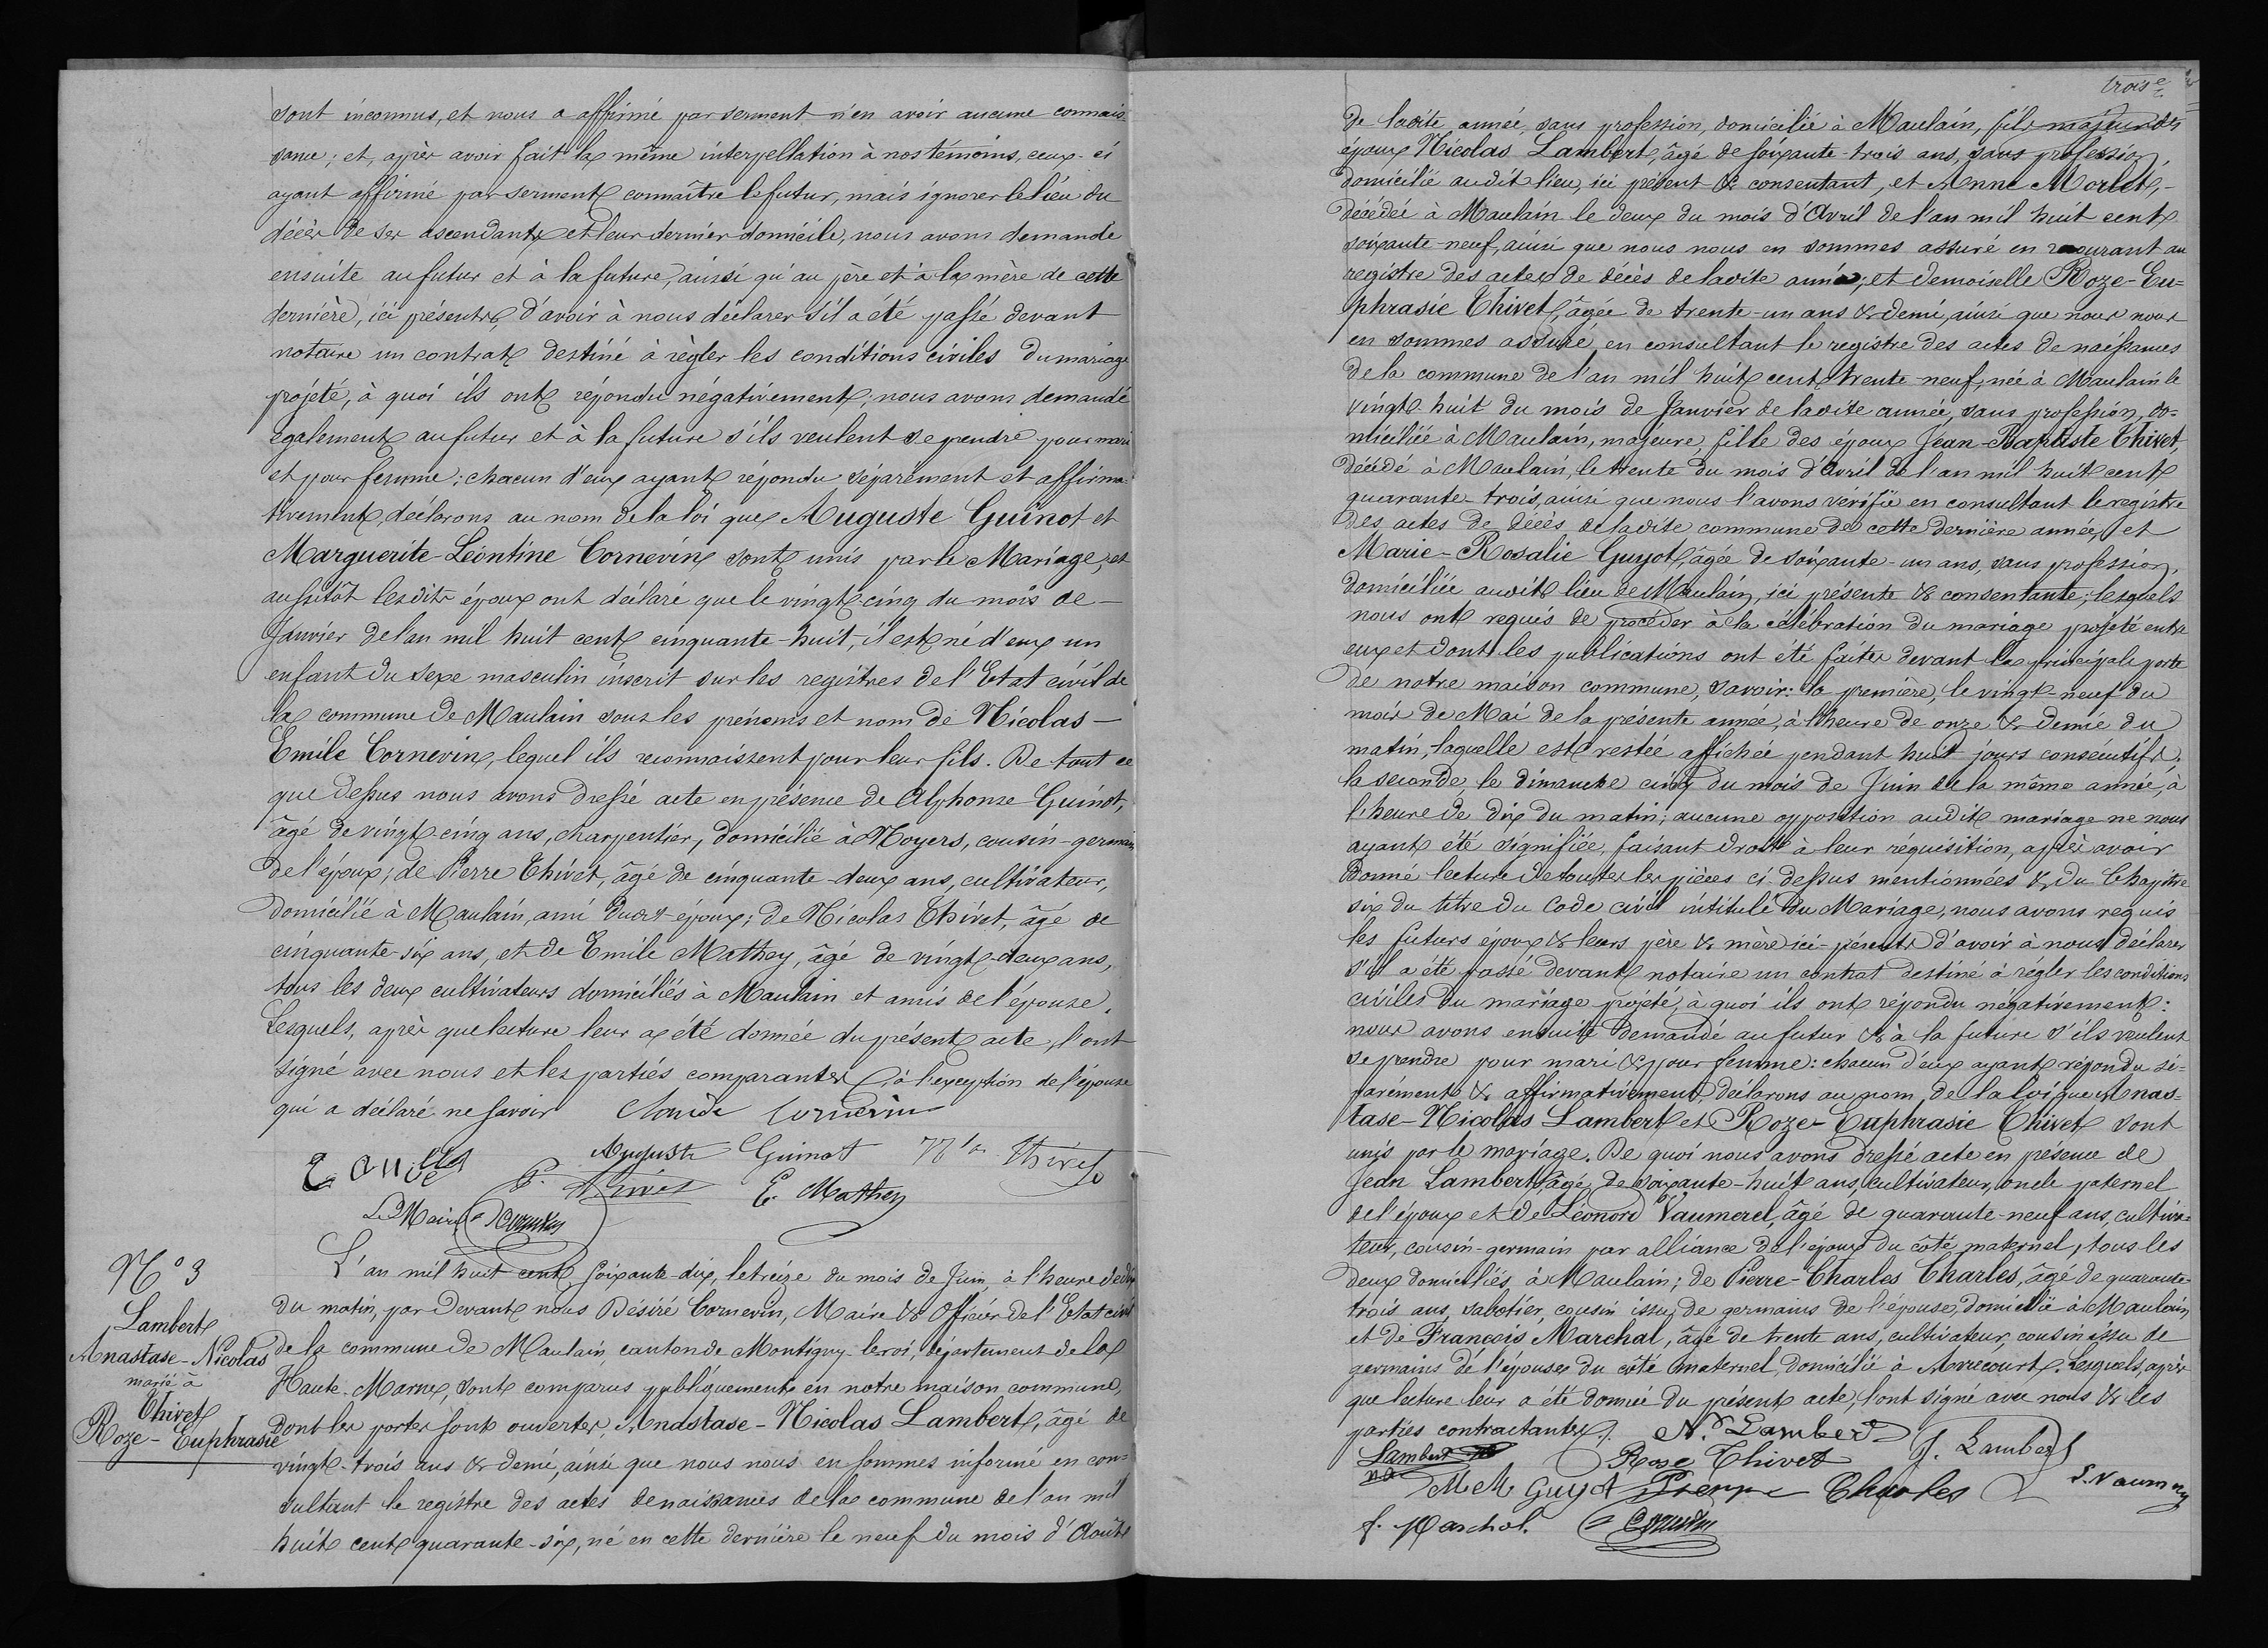 sont inconnus, et nous a affirmé par serment n'en avoir aucune connais-
sance ; et, après avoir fait la même interpellation à nos témoins, ceux-ci
ayant affirmé par serment connaître le futur, mais ignorer le lieu du
décès de ses ascendants et leur dernier domicile, nous avons demandé
ensuite au futur et à la future, ainsi qu'au père et à la mère de cette
dernière, ici présents, d'avoir à nous déclarer s'il a été passé devant
notaire un contrat destiné à règler les conditions civiles du mariage
projété, à quoi ils ont répondu négativement ; nous avons demandé
également au futur et à la future s'ils veulent se prendre pour mari
et pour femme ; chacun d'eux ayant répondu séparément et affirma-
tivement, déclarons au nom de la loi que Auguste Guinot et
Marguerite-Léontine Cornevin sont unis par le Mariage, et
aussitôt lesdits époux ont déclaré que le vingt-cinq du mois de —
Janvier de l'an mil huit cent cinquante-huit, il est né d'eux un
enfant du sexe masculin inscrit sur les registres de l'Etat civil de
la commune de Maulain sous les prénoms et nom de Nicolas —
Emile Cornevin, lequel ils reconnaissent pour leur fils. De tout ce
que dessus nous avons dressé acte en présence de Alphonse Guinot,
âgé de vingt-cinq ans, charpentier, domicilié à Noyers, cousin-germain
de l'époux ; de Pierre Thivet, âgé de cinquante-deux ans, cultivateur,
domicilié à Maulain, ami dudit époux ; de Nicolas Thivet, âgé de
cinquante-six ans, et de Emile Mathey, âgé de vingt-deux ans,
tous les deux cultivateurs domiciliés à Maulain et amis de l'épouse.
Lesquels, après que lecture leur a été donnée du présent acte, l'ont
signé avec nous et les parties comparantes, à l'exception de l'épouse
qui a déclaré ne savoir Claude Cornevin
Auguste Guinot Nas Thivet
P. Thivet E. Mathey
Le Maire Cornevin
N° 3
Lambert
Anastase-Nicolas
marié à
Thivet
Roze-Euphrasie
L'an mil huit cent soixante-dix, le treize du mois de Juin à l'heure de dix
du matin, par devant nous Désiré Cornevin, Maire & Officier de l'Etat civil
de la commune de Maulain, canton de Montigny-le-roi, département de la
Haute-Marne, sont comparus publiquement en notre maison commune,
dont les portes sont ouvertes, Anastase-Nicolas Lambert, âgé de
vingt-trois ans & demi, ainsi que nous nous en sommes informé en con-
sultant le registre des actes de naissances de la commune de l'an mil
huit cent quarante-six, né en cette dernière le neuf du mois d'Août
troise
de ladite année, sans profession, domicilié à Maulain, fils majeur des
époux Nicolas Lambert, âgé de soixante-trois ans, sans profession,
domicilié audit lieu, ici présent & consentant, et Anne Morlet, -
décédée à Maulain le deux du mois d'Avril de l'an mil huit cent
soixante-neuf, ainsi que nous nous en sommes assuré en recourant au
registre des actes de décès de ladite année ; et demoiselle Roze-Eu-
phrasie Thivet, âgée de trente-un ans & demi, ainsi que nous nous
en sommes assuré, en consultant le registre des actes de naissances
de la commune de l'an mil huit cent trente-neuf, née à Maulain le
vingt-huit du mois de Janvier de ladite année, sans profession, do-
miciliée à Maulain, majeure, fille des époux Jean-Baptiste Thivet,
décédé à Maulain, le trente du mois d'Avril de l'an mil huit cent
quarante-trois, ainsi que nous l'avons vérifié en consultant le registre
des actes de décès de ladite commune de cette dernière année, et
Marie-Rosalie Guyot, âgée de soixante-un ans, sans profession,
domiciliée audit lieu de Maulain, ici présente & consentante ; lesquels
nous ont requis de procéder à la célébration du mariage projeté entre
eux et dont les publications ont été faites devant la principale porte
de notre maison commune, savoir : la première, le vingt-neuf du
mois de Mai de la présente année, à l'heure de onze & demie du
matin, laquelle est restée affichée pendant huit jours consécutifs ;
la seconde, le dimanche cinq du mois de Juin de la même année, à
l'heure de dix du matin ; aucune opposition audit mariage ne nous
ayant été signifiée, faisant droit à leur réquisition, après avoir
donné lecture de toutes les pièces ci-dessus mentionnées & du Chapitre
six du titre du Code civil intitulé du Mariage, nous avons requis
les futurs époux & leurs père & mère ici-présents d'avoir à nous déclarer
s'il a été passé devant notaire un contrat destiné à régler les conditions
civiles du mariage projeté, à quoi ils ont répondu négativement :
nous avons ensuite demandé au futur & à la future s'ils veulent
se prendre pour mari & pour femme : chacun d'eux ayant répondu sé-
parément & affirmativement, déclarons au nom de la loi que Anas-
tase-Nicolas Lambert et Roze-Euphrasie Thivet sont
unis par le mariage. De quoi nous avons dressé acte en présence de
Jean Lambert, âgé de soixante-huit ans, cultivateur, oncle paternel
de l'époux et de Léonord Vaumerel, âgé de quarante-neuf ans, cultiva-
teur, cousin-germain par alliance de l'époux du côté maternel, tous les
deux domiciliés à Maulain ; de Pierre-Charles Charles, âgé de quarante-
trois ans, sabotier, cousin issu de germains de l'épouse, domicilié à Maulain,
et de François Marchal, âgé de trente ans, cultivateur, cousin issu de
germains de l'épouse du côté maternel, domicilié à Avrecourt. Lesquels, après
que lecture leur a été donnée du présent acte, l'ont signé avec nous & les
parties contractantes. N.s Lambert
Lambert Rose Thivet J. Lambert
M R Guyot Pierre Charles
f. Marchal. Cornevin